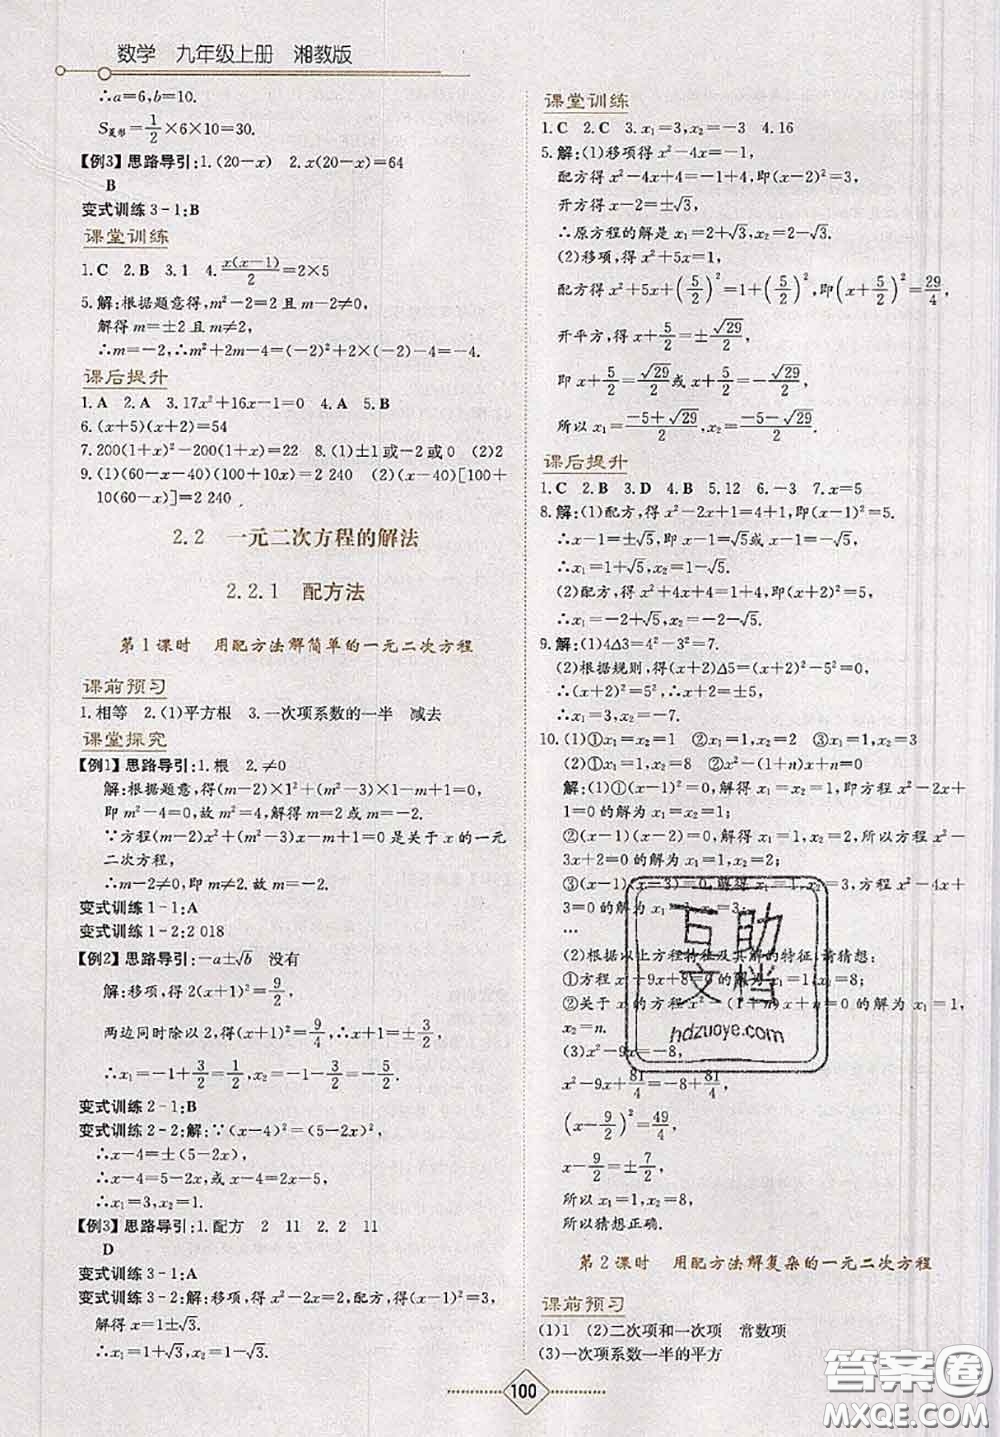 数学 九年级上册 湘教版
∴a=6,b=10.
S菱形=1/2×6×10=30.
【例3】思路导引:1.(20-x) 2.x(20-x)=64
B
变式训练3-1:B
课堂训练
1.C 2.B 3.1 4.x(x-1)/2=2×5
5.解:根据题意得,m²-2=2且m-2≠0,
解得m=±2且m≠2,
∴m=-2,∴m²+2m-4=(-2)²+2×(-2)-4=-4.
课后提升
1.A 2.A 3.17x²+16x-1=0 4.A 5.B
6.(x+5)(x+2)=54
7.200(1+x)²-200(1+x)=22 8.(1)±1或-2或0 (2)2
9.(1)(60-x-40)(100+10x)=2 240 (2)(x-40)[100+
10(60-x)]=2 240
2.2 一元二次方程的解法
2.2.1 配方法
第1课时 用配方法解简单的一元二次方程
课前预习
1.相等 2.(1)平方根 3.一次项系数的一半 减去
课堂探究
【例1】思路导引:1.根 2.≠0
解:根据题意,得(m-2)×1²+(m²-3)×1-m+1=0,
即m²-4=0,故m²=4,解得m=2或m=-2.
∵方程(m-2)x²+(m²-3)x-m+1=0是关于x的一元
二次方程,
∴m-2≠0,即m≠2.故m=-2.
变式训练1-1:A
变式训练1-2:2 018
【例2】思路导引:-a±√b 没有
解:移项,得2(x+1)²=9/2,
两边同时除以2,得(x+1)²=9/4,∴x+1=±3/2,
∴x₁=-1+3/2=1/2,x₂=-1-3/2=-5/2.
变式训练2-1:B
变式训练2-2:解:∵(x-4)²=(5-2x)²,
∴x-4=±(5-2x),
∴x-4=5-2x,或x-4=-5+2x,
∴x₁=3,x₂=1.
【例3】思路导引:1.配方 2 11 2.2 11
D
变式训练3-1:A
变式训练3-2:解:移项,得x²-2x=2,配方,得(x-1)²=3,
解得x=1±√3.
∴x₁=1+√3,x₂=1-√3.
课堂训练
1.C 2.C 3.x₁=3,x₂=-3 4.16
5.解:(1)移项得x²-4x=-1,
配方得x²-4x+4=-1+4,即(x-2)²=3,
开方得x-2=±√3,
∴原方程的解是x₁=2+√3,x₂=2-√3.
(2)移项,得x²+5x=1,
配方得x²+5x+(5/2)²=1+(5/2)²,即(x+5/2)²=29/4,
开平方,得x+5/2=±√29/2,
即x+5/2=√29/2或x+5/2=-√29/2,
所以x₁=(-5+√29)/2,x₂=(-5-√29)/2.
课后提升
1.C 2.B 3.D 4.B 5.12 6.-3 7.x=5
8.解:(1)配方,得x²-2x+1=4+1,即(x-1)²=5.
∴x-1=±√5,即x-1=√5或x-1=-√5.
∴x₁=1+√5,x₂=1-√5.
(2)配方,得x²+4x+4=1+4,即(x+2)²=5,
∴x+2=±√5,∴x₁=-2+√5,x₂=-2-√5.
9.解:(1)4Δ3=4²-3²=7.
(2)根据规则,得(x+2)Δ5=(x+2)²-5²=0.
∴(x+2)²=5²,∴x+2=±5,
∴x₁=3,x₂=-7.
10.(1)①x₁=x₂=1 ②x₁=1,x₂=2 ③x₁=1,x₂=3
(2)①x₁=1,x₂=8 ②x²-(1+n)x+n=0
解:(1)①(x-1)²=0,解得x₁=x₂=1,即方程x²-2x+
1=0的解为x₁=x₂=1,
②(x-1)(x-2)=0,解得x₁=1,x₂=2,所以方程x²-
3x+2=0的解为x₁=1,x₂=2;
③(x-1)(x-3)=0,解得x₁=1,x₂=3,方程x²-4x+
3=0的解为x₁=1,x₂=3;
…
(2)根据以上方程特征及其解的特征,请猜想:
①方程x²-9x+8=0的解为x₁=1,x₂=8;
②关于x的方程x²-(1+n)x+n=0的解为x₁=1,
x₂=n.
(3)x²-9x=-8,
x²-9x+81/4=-8+81/4,
(x-9/2)²=49/4,
x-9/2=±7/2,
所以x₁=1,x₂=8,
所以猜想正确.
第2课时 用配方法解复杂的一元二次方程
课前预习
(1)1 (2)二次项和一次项 常数项
(3)一次项系数一半的平方
100
互助
文档
hdzuoye.com
答案圈
MXQE.COM